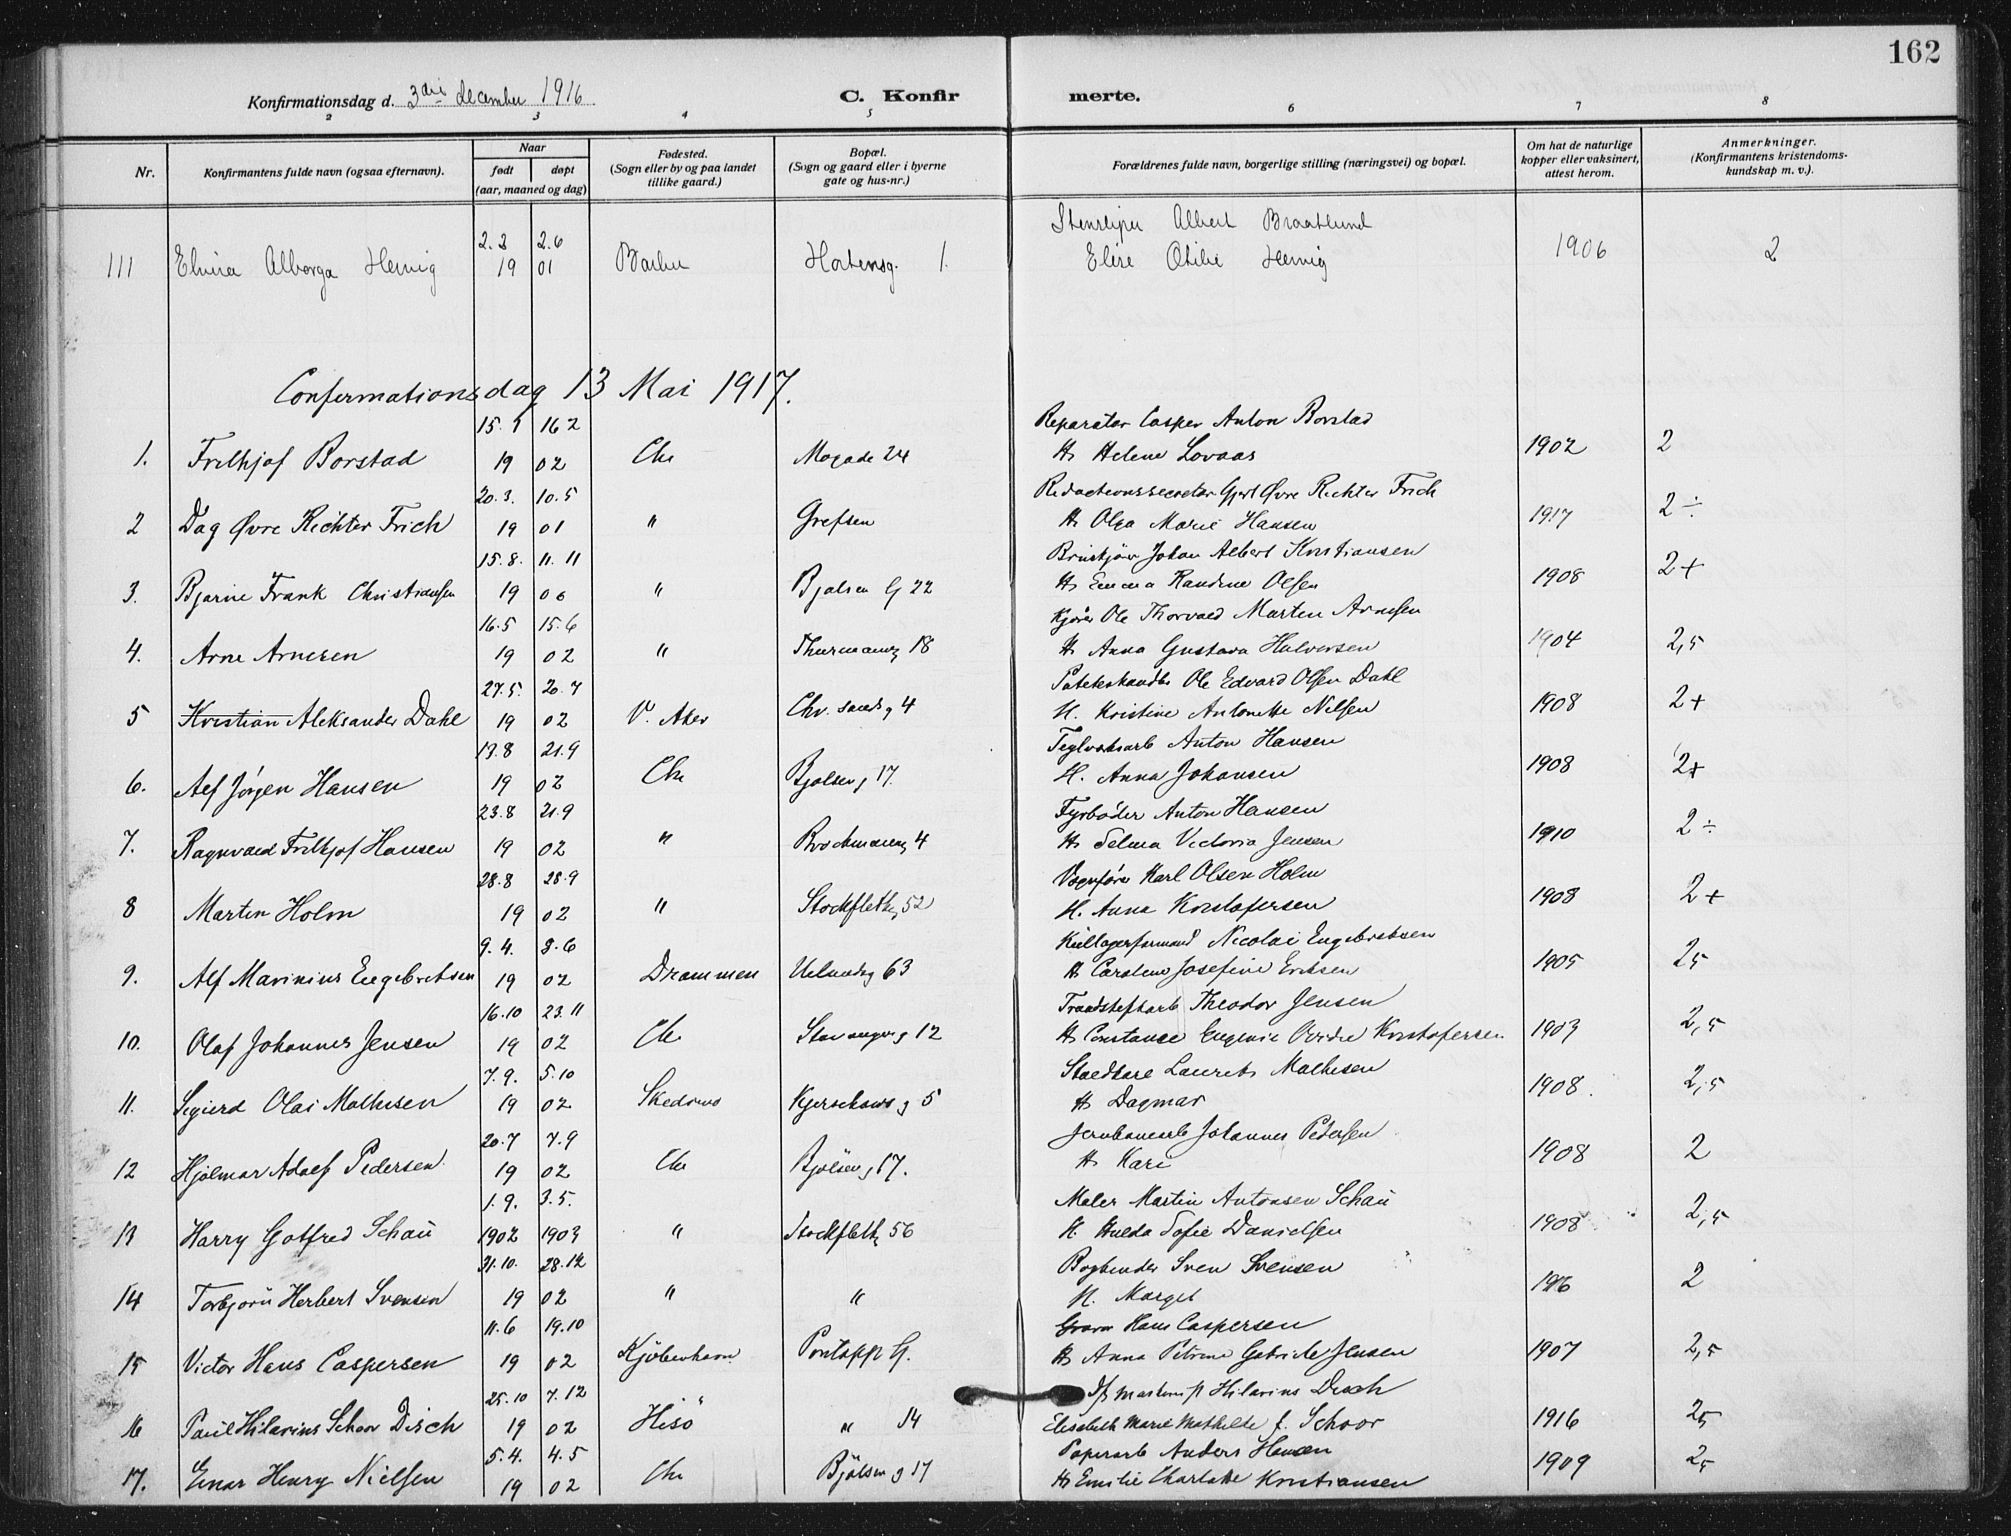 162
Konfirmationsdag d. 3die december 1916
C. Konfir merte.
2 3 4 5 6 7 8
Nr.
Konfirmantens fulde navn (ogsaa efternavn).
Naar
født døpt
(aar, maaned og dag)
Fødested.
(Sogn eller by og paa landet
tillike gaard.)
Bopæl.
(Sogn og gaard eller i byerne
gate og hus-nr.)
Forældrenes fulde navn, borgerlige stilling (næringsvei) og bopæl.
Om hat de naturlige
kopper eller vaksinert,
attest herom.
Anmerkninger.
(Konfirmantens kristendoms-
kundskap m. v.).
2.2 2.6 Stensliper Albert Braatlund
111 Elvira Alborga Hennig 19 01 Barbu Hortensg. 1. Elise Otilie Hennig 1906 2
Confirmationsdag 13 Mai 1917.
15.1 16 2 Reparatør Casper Anton Borstad
1. Frithjof Borstad 19 02 Chr Mogade 24 H Helene Lovaas 1902 2
20.3. 10.5 Redactionssecretær Gjert Øvre Richter Frich
2 Dag Øvre Richter Frich 19 01 " Grefsen H Olga Marie Hansen 1917 2 ÷
15.8. 11.11 Johan Albert Kristiansen
3. Bjarne Frank Christiansen 19 00 " Bjølsen G 22 H Emma Randine Olsen 1908 2+
16.5 15.6 Kjører Ole Thorvald Marten Arnesen
4. Arne Arnesen 19 02 " Thurmanng 18 H Anna Gustava Halvorsen 1904 2,5
27.5. 20.7 Ole Edvard Olsen Dahl
5 Kristian Aleksander Dahl 19 02 V. Aker Chr. sandsg 4 H. Kristine Antonette Nilsen 1908 2+
13.8 21.9 Teglverksarb Anton Hansen
6. Alf Jörgen Hansen 19 02 Chr Bjølseng 17. H. Anna Johansen 1908 2+
23.8 21.9 Fyrbøder Anton Hansen
7. Ragnvald Frithjof Hansen 19 02 " Brochmanng 4 H Selma Victoria Jensen 1910 2 ÷
28.8 28.9 Vognfører Karl Olsen Holm
8 Martin Holm 19 02 " Stockflethg 52 H. Anna Kristofersen 1908 2+
9.4. 8.6 Kullagerformand Nicolai Engebretsen
9. Alf Marinius Engebretsen 19 02 Drammen Uelandsg 63 H Caroline Josefine Eriksen 1905 25
16.10 23.11 Theodor Jensen
10. Olaf Johannes Jensen 19 02 Chr Stavangerg 12 H Constance Eugenie Kristofersen 1903 2,5
7.9. 5.10 Laurits Mathesen
11. Sigurd Olai Mathesen 19 02 Skedsmo Kjerschows g 5 H Dagmar 1908. 2,5
20.7 7.9 Jernbanearb Johannes Pedersen
12 Hjalmar Adolf Pedersen 19 02 Chr Bjölsen g 17. H Kari 1908 2
1.9. 3.5. Maler Martin Antonsen Schau
13 Harry Gotfred Schau 1902 1903 " Stockflethg 56 H. Hulda Sofie Danielsen 1908 2,5
31.10. 28.12 Bogbinder Sven Svensen
14 Torbjorn Herbert Svensen 19 02 " " H. Marget 1916 2
11.6 19.10 Hans Caspersen
15 Victor Hans Caspersen 19 02 Kjöbenhavn Pontopp G. H Anna Petrine Gabriele Jensen 1907 2,5
25.10 7.12 Hilarius Disch
16 Paul Hilarius Schoor Disch 19 02 Hisö " 14 Elisabeth Marie Mathilde f. Schoor 1916 25
5.4. 4.5 Papirarb Anders Hansen
17. Einar Henry Nielsen 19 02 Chr Bjölsen g 17 H Emilie Charlotte Kristiansen 1909 25